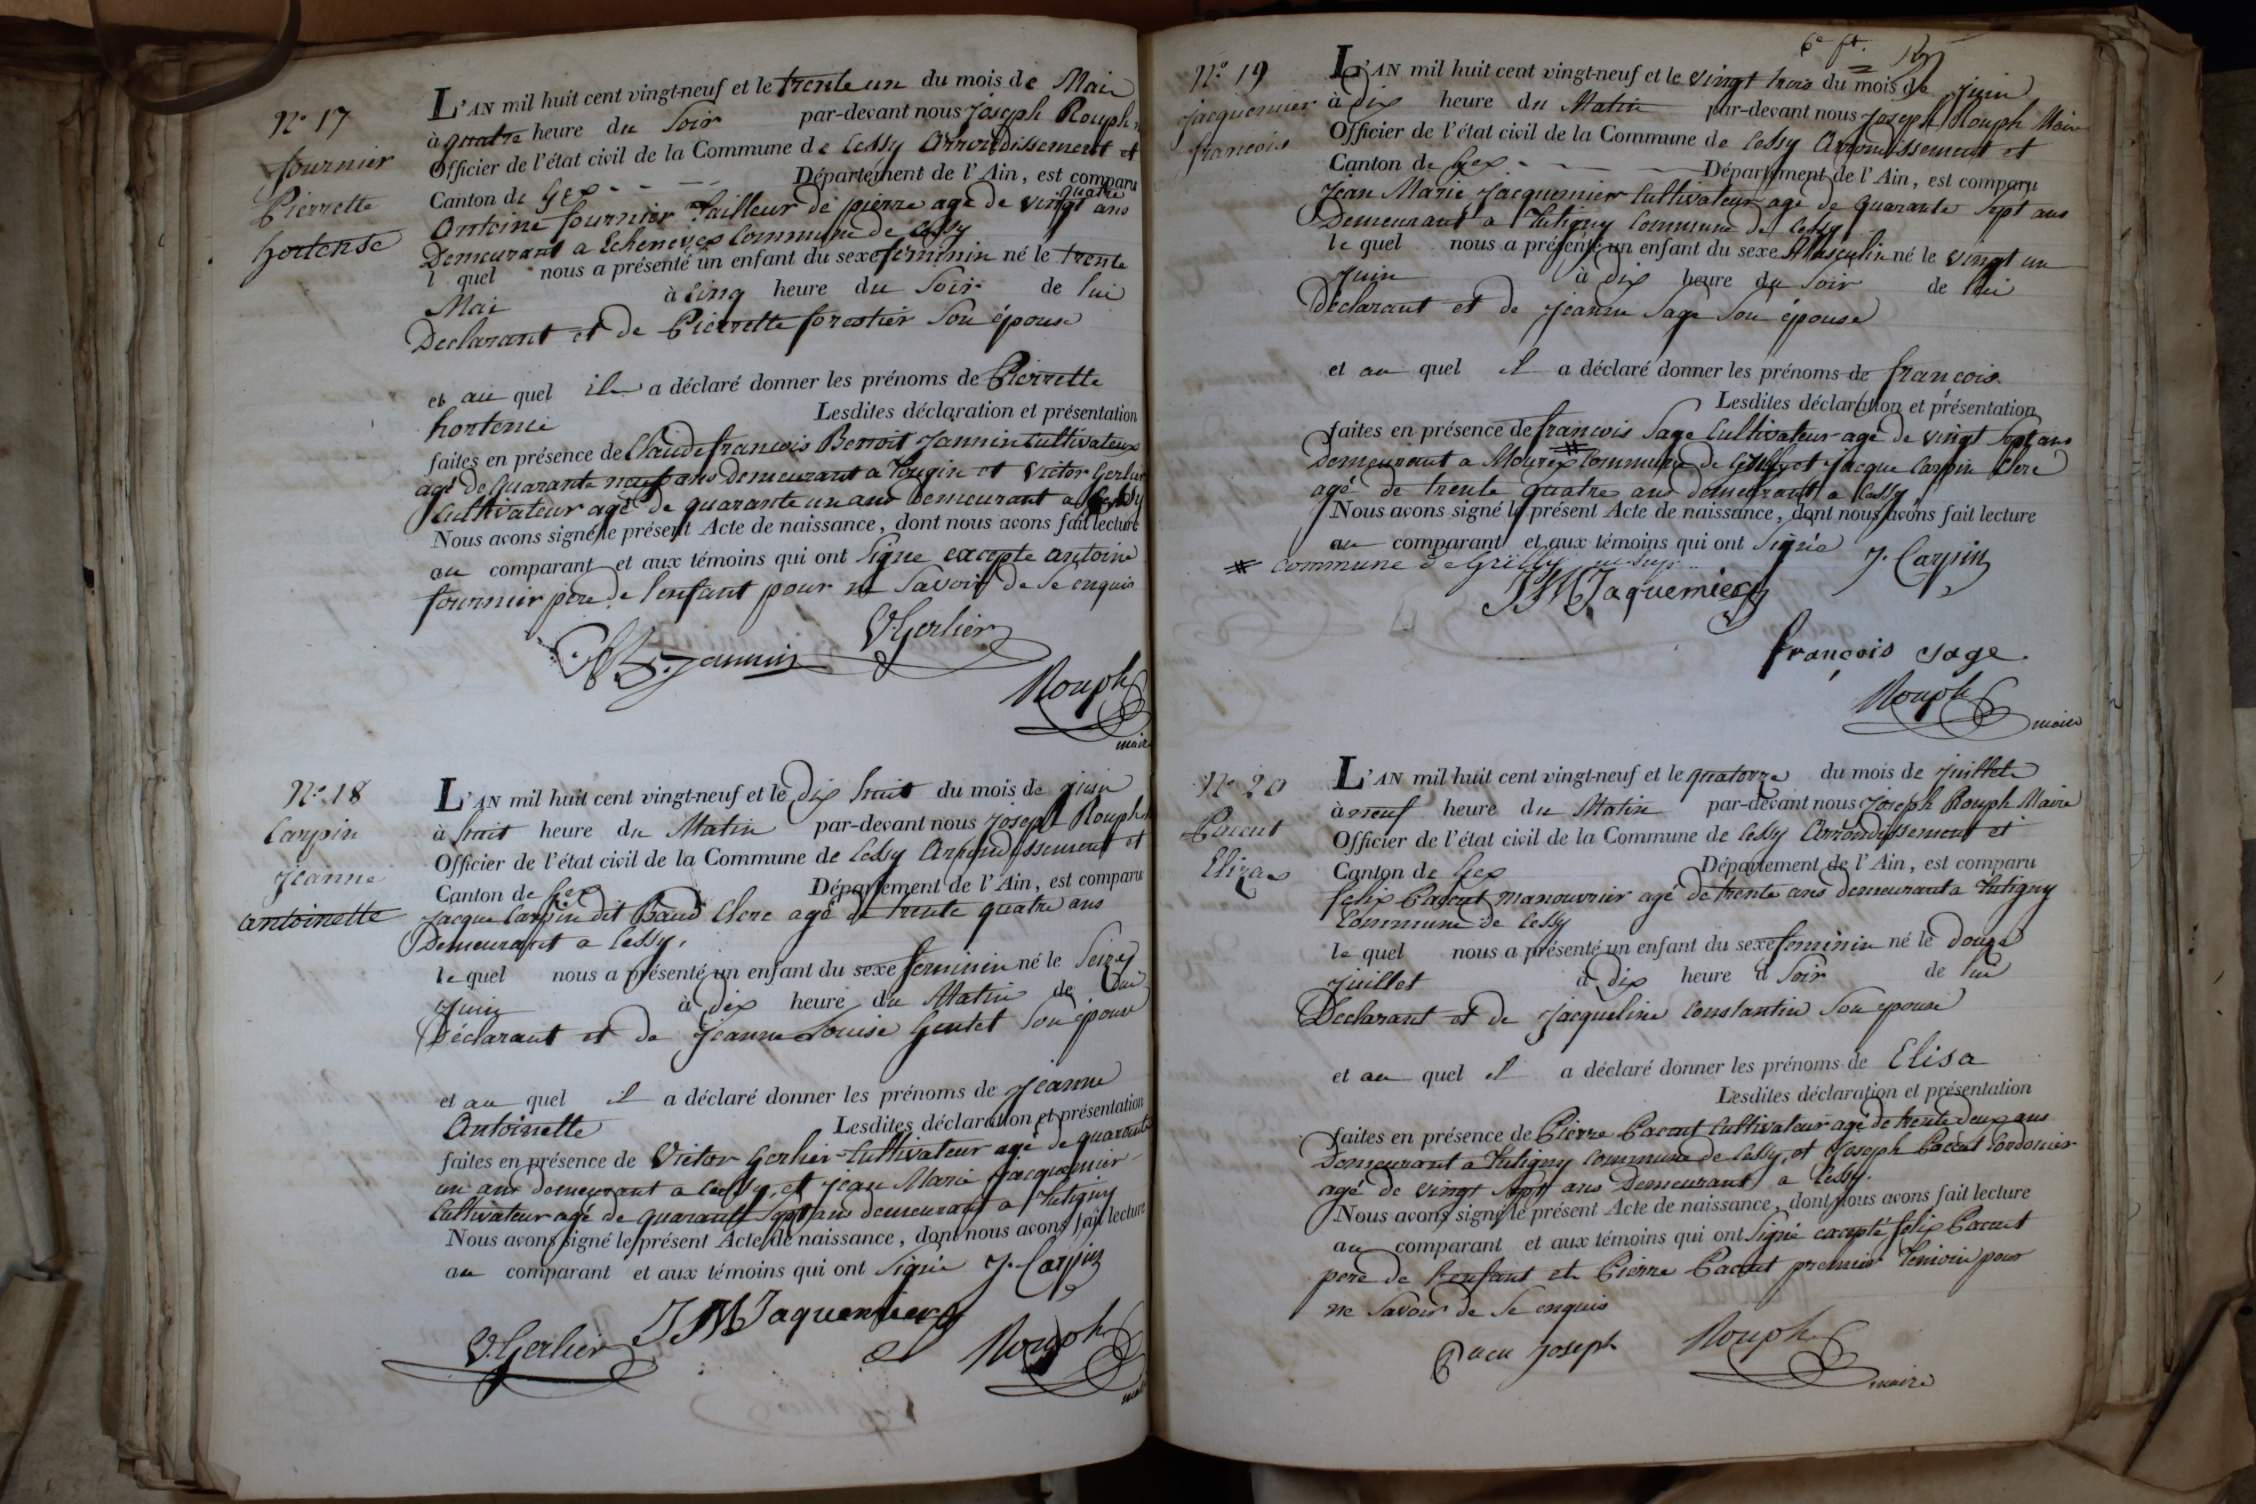 N.o 17
fournier
Pierrette
hortense
L'AN mil huit cent vingt-neuf et le trente un du mois de Mai
à quatre heure du Soir par-devant nous Joseph Rouph
Officier de l'état civil de la Commune de Cessy Arrondissement et
Canton de Gex - - - Département de l'Ain, est comparu
quatre
Antoine fournier Tailleur de pierre agé de vingt ans
Demeurant a Echenevex Commune de Cessy
l quel nous a présenté un enfant du sexe féminin né le trente
Mai à Cinq heure du Soir de lui
Declarant et de Pierrette forestier Son épouse
et au quel il a déclaré donner les prénoms de Pierrette
hortense Lesdites déclaration et présentation
faites en présence de Claude françois Benoit Jannin Cultivateur
agé de quarante neuf ans Demeurant a Tougin et Victor Gerlier
Cultivateur agé de quarante un ans Demeurant a Cessy
Nous avons signé le présent Acte de naissance, dont nous avons fait lecture
au comparant et aux témoins qui ont Signe excepte antoine
fournier pere de l'enfant pour ne Savoir de Se enquis
Jannin V. Gerlier
Rouph
maire
N.o 18
Carpin
Jeanne
antoinette
L'AN mil huit cent vingt-neuf et le dix huit du mois de juin
à huit heure du Matin par-devant nous Joseph Rouph
Officier de l'état civil de la Commune de Cessy Arrondissement et
Canton de Gex Département de l'Ain, est comparu
Jacque Carpin dit Baud Clerc agé de trente quatre ans
Demeurant a Cessy.
le quel nous a présenté un enfant du sexe feminin né le Seize
Juin à dix heure du Matin de lui
Déclarant et de Jeanne Louise Gentet Son épouse
et au quel il a déclaré donner les prénoms de Jeanne
Antoinette Lesdites déclaration et présentation
faites en présence de Victor Gerlier Cultivateur agé de quarante
un ans demeurant a Cessy, et Jean Marie Jacquemier
Cultivateur agé de quarante Sept ans demeurant a Tutigny
Nous avons signé le présent Acte de naissance, dont nous avons fait lecture
au comparant et aux témoins qui ont Signé J. Carpin
JMJaquemier
V. Gerlier Rouph
maire
6e ft.
N.o 19
Jacquemier
francois
L'AN mil huit cent vingt-neuf et le vingt trois du mois de Juin
à dix heure du Matin par-devant nous Joseph Rouph Maire
Officier de l'état civil de la Commune de Cessy Arrondissement et
Canton de Gex - - - Département de l'Ain, est comparu
Jean Marie Jacquemier Cultivateur agé de quarante Sept ans
Demeurant a Tutigny Commune de Cessy
le quel nous a présenté un enfant du sexe Masculin né le vingt un
Juin à dix heure du Soir de lui
Déclarant et de Jeanne Sage Son épouse
et au quel il a déclaré donner les prénoms de françois.
Lesdites déclaration et présentation
faites en présence de françois Sage Cultivateur agé de vingt Sept ans
#
Demeurant a Mourex Commune de Grilly et Jacque Carpin Clerc
agé de trente quatre ans demeurant a Cessy.
Nous avons signé le présent Acte de naissance, dont nous avons fait lecture
au comparant et aux témoins qui ont Signé J. Carpin
# Commune de Grilly
JMJaquemier
françois sage.
Rouph
maire
N.o 20
Pacent
Eliza
L'AN mil huit cent vingt-neuf et le quatorze du mois de Juillet
à neuf heure du Matin par-devant nous Joseph Rouph Maire
Officier de l'état civil de la Commune de Cessy Arrondissement et
Canton de Gex Département de l'Ain, est comparu
felix Pacent manouvrier agé de trente ans demeurant a Tutigny
Commune de Cessy
le quel nous a présenté un enfant du sexe feminin né le douze
Juillet à dix heure d Soir de lui
Declarant et de Jacqueline Constantin Son epouse
et au quel il a déclaré donner les prénoms de Elisa
Lesdites déclaration et présentation
faites en présence de Pierre Pacent Cultivateur agé de trente deux ans
Demeurant a Tutigny Commune de Cessy, et Joseph Pacent Cordonier
agé de vingt Sept ans Demeurant a Cessy.
Nous avons signé le présent Acte de naissance, dont nous avons fait lecture
au comparant et aux témoins qui ont Signé excepté felix Pacent
pere de l'enfant et Pierre Pacent premier Temoin pour
ne Savoir de Se enquis
Joseph Rouph
maire